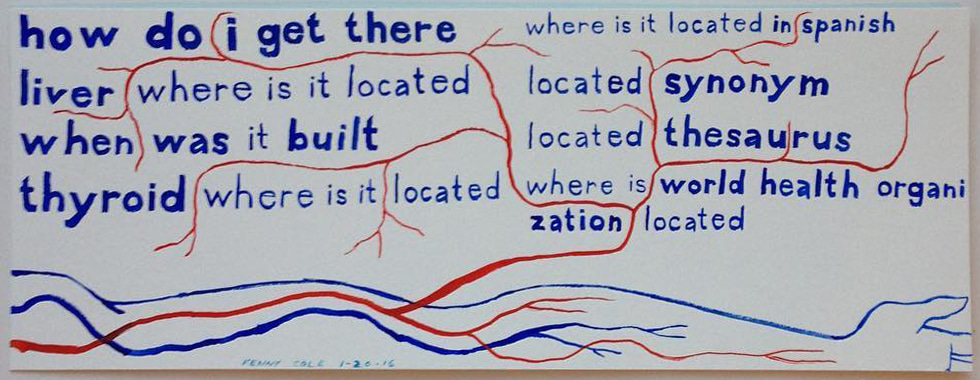 how do i get there
liver where is it located
when was it built
thyroid where is it located
where is it located in spanish
located synonym
located thesaurus
where is world health organi
zation located
KENNY COLE 1-20-16